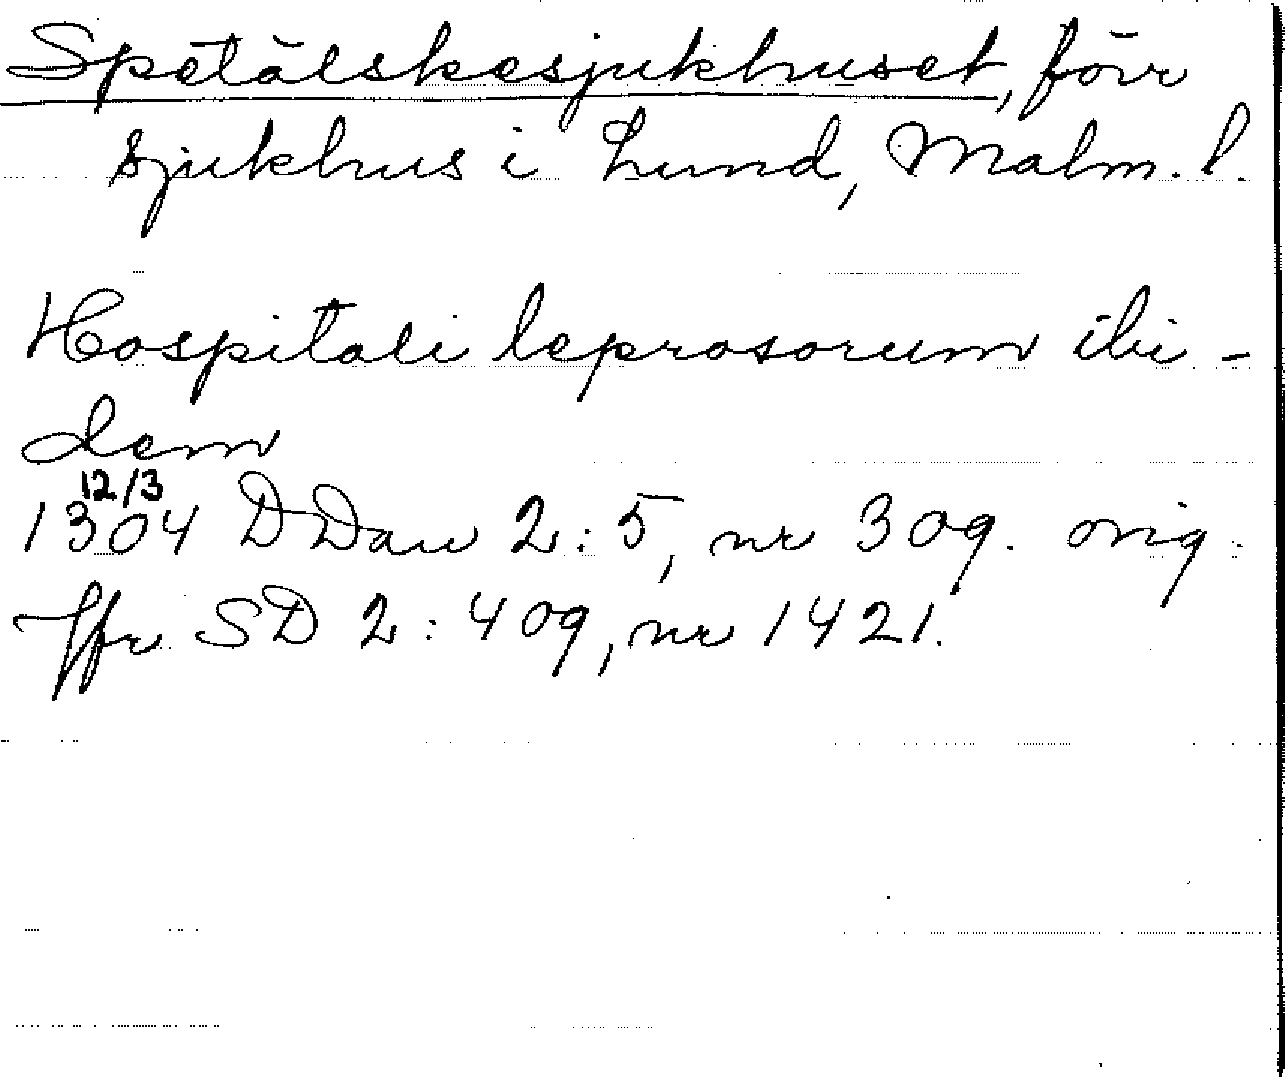 Spetälskesjukhuset, förr
sjukhus i Lund, Malm. l.
Hospitali leprosorum ibi-
dem
12/3
1304 DDan 2:5, nr 309. orig.
Jfr SD 2:409, nr 1421.